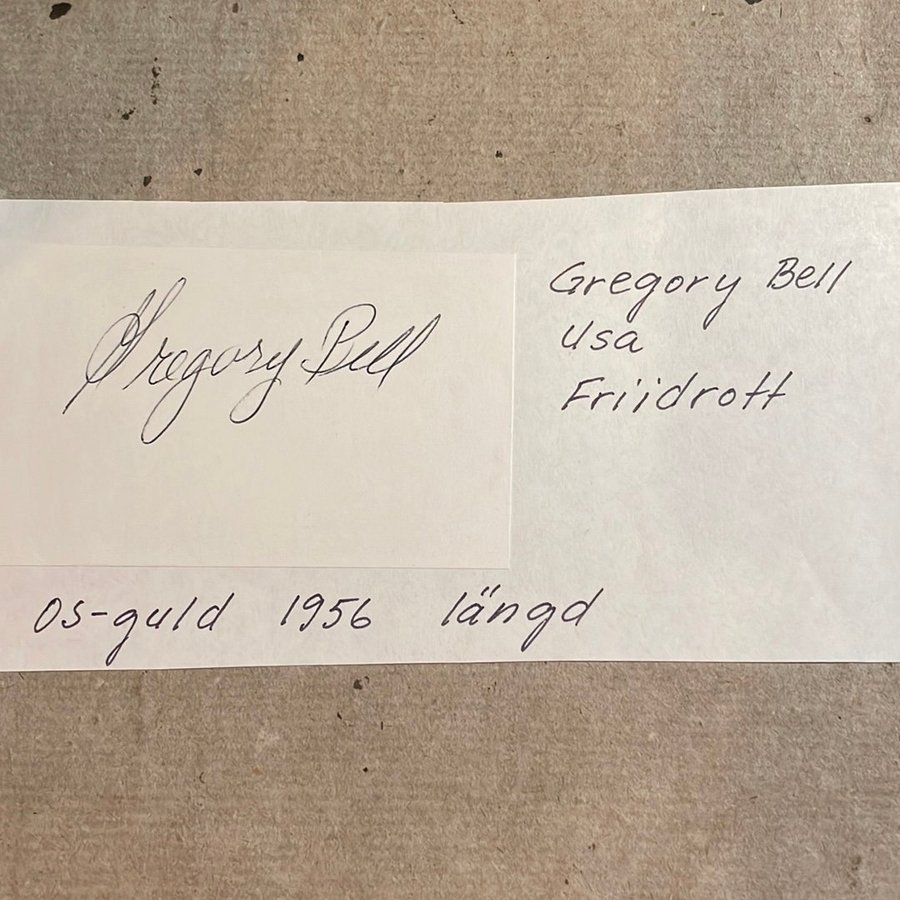 Gregory Bell
Gregory Bell
Usa
Friidrott
OS-guld 1956 längd